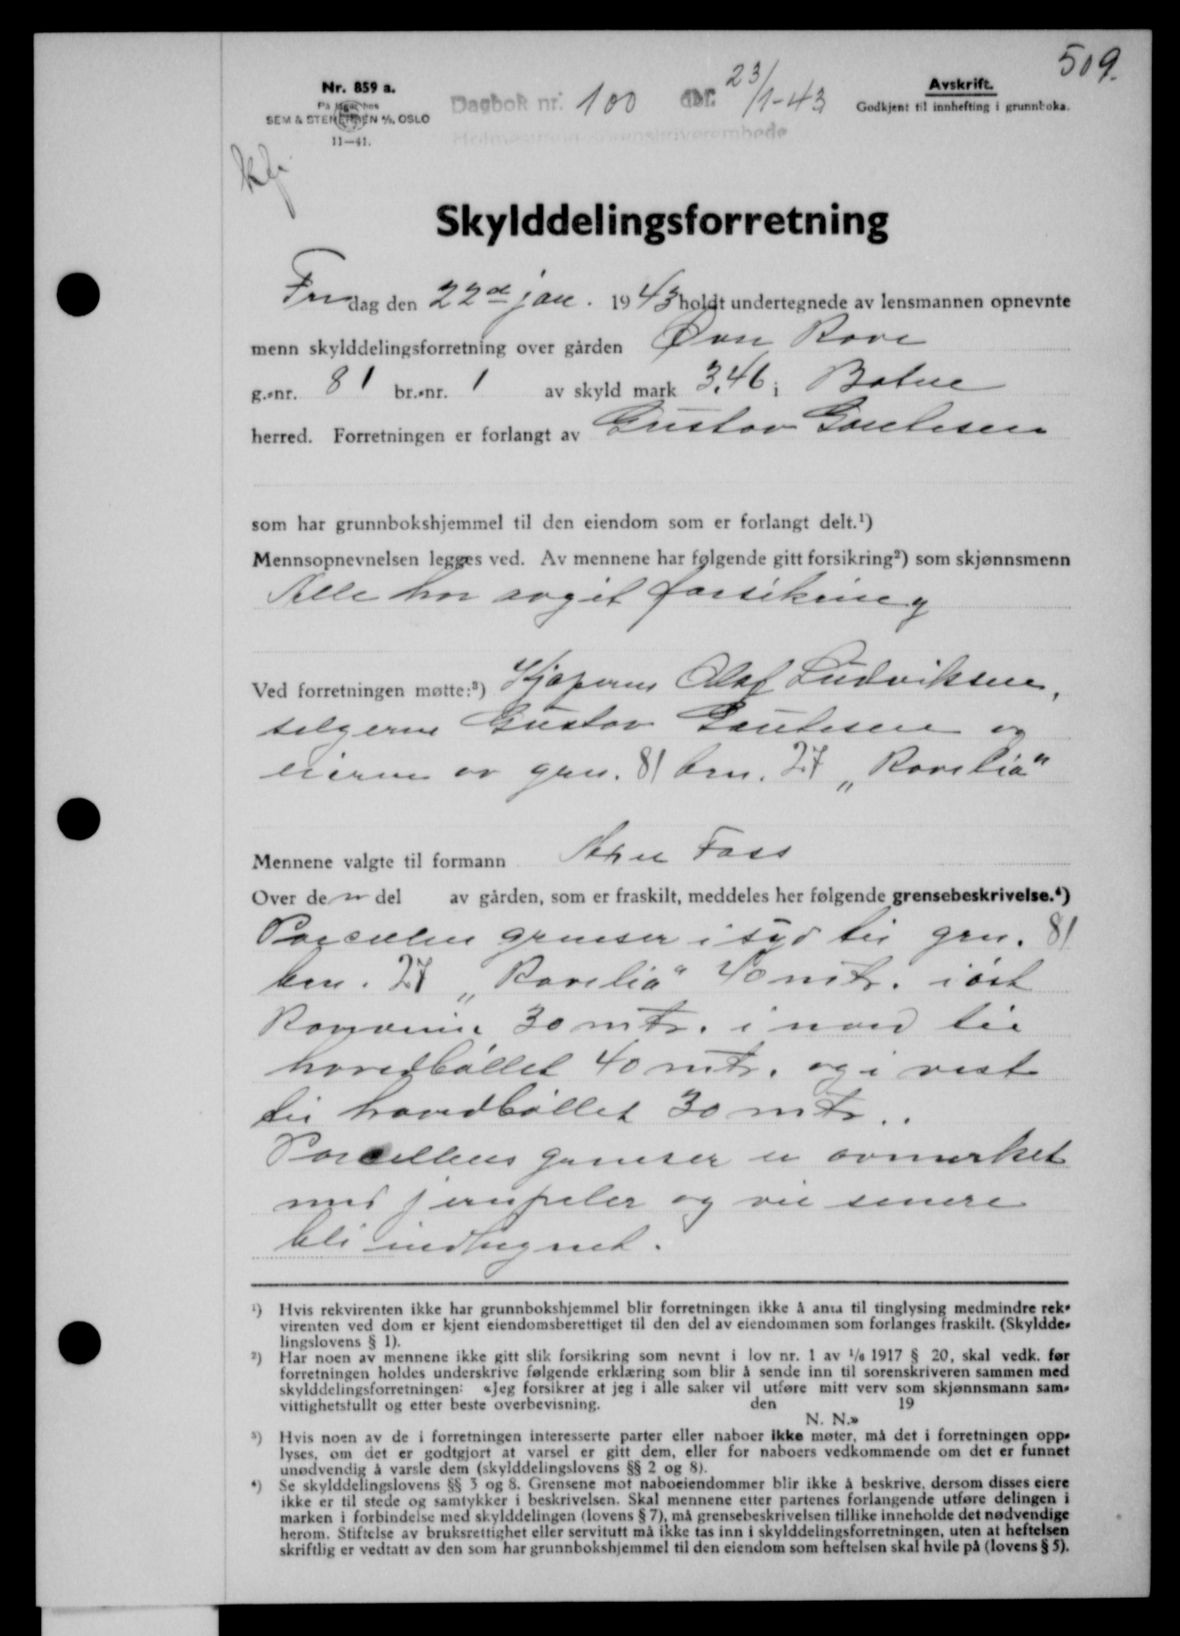 509.
Nr. 859 a.
På lager hos
SEM & STENERSEN A/S, OSLO
11—41.
Dagbok nr. 100 dbf. 23/1-43
Avskrift.
Godkjent til innhefting i grunnboka.
Skylddelingsforretning
Fredag den 22de jan. 1943 holdt undertegnede av lensmannen opnevnte
menn skylddelingsforretning over gården Øvre Rove
g.-nr. 81 br.-nr. 1 av skyld mark 3.46 i Botne
herred. Forretningen er forlangt av Gustav Gautesen
som har grunnbokshjemmel til den eiendom som er forlangt delt.¹)
Mennsopnevnelsen legges ved. Av mennene har følgende gitt forsikring²) som skjønnsmenn
Alle har avgit forsikring
Ved forretningen møtte:³) Kjøperen Olaf Ludviksen,
selgeren Gustav Gautesen og
eieren av grn. 81 brn. 27 „Rovelia"
Mennene valgte til formann Foss
Over den del av gården, som er fraskilt, meddeles her følgende grensebeskrivelse.⁴)
Parcellen grenser i syd til grn. 81
brn. 27 „Rovelia" 40 mtr. i øst
Roveveien 30 mtr. i nord til
hovedbøllet 40 mtr. og i vest
til hovedbøllet 30 mtr..
Parcellens grenser er avmerket
med jernpeler og vil senere
bli indhegnet.
¹) Hvis rekvirenten ikke har grunnbokshjemmel blir forretningen ikke å anta til tinglysing medmindre rek-
virenten ved dom er kjent eiendomsberettiget til den del av eiendommen som forlanges fraskilt. (Skyldde-
lingslovens § 1).
²) Har noen av mennene ikke gitt slik forsikring som nevnt i lov nr. 1 av 1/6 1917 § 20, skal vedk. før
forretningen holdes underskrive følgende erklæring som blir å sende inn til sorenskriveren sammen med
skylddelingsforretningen: «Jeg forsikrer at jeg i alle saker vil utføre mitt verv som skjønnsmann sam-
vittighetsfullt og etter beste overbevisning. den 19
N. N.»
³) Hvis noen av de i forretningen interesserte parter eller naboer ikke møter, må det i forretningen opp-
lyses, om det er godtgjort at varsel er gitt dem, eller for naboers vedkommende om det er funnet
unødvendig å varsle dem (skylddelingslovens §§ 2 og 8).
⁴) Se skylddelingslovens §§ 3 og 8. Grensene mot naboeiendommer blir ikke å beskrive, dersom disses eiere
ikke er til stede og samtykker i beskrivelsen. Skal mennene etter partenes forlangende utføre delingen i
marken i forbindelse med skylddelingen (lovens § 7), må grensebeskrivelsen tillike inneholde det nødvendige
herom. Stiftelse av bruksrettighet eller servitutt må ikke tas inn i skylddelingsforretningen, uten at heftelsen
skriftlig er vedtatt av den som har grunnbokshjemmel til den eiendom som heftelsen skal hvile på (lovens § 5).